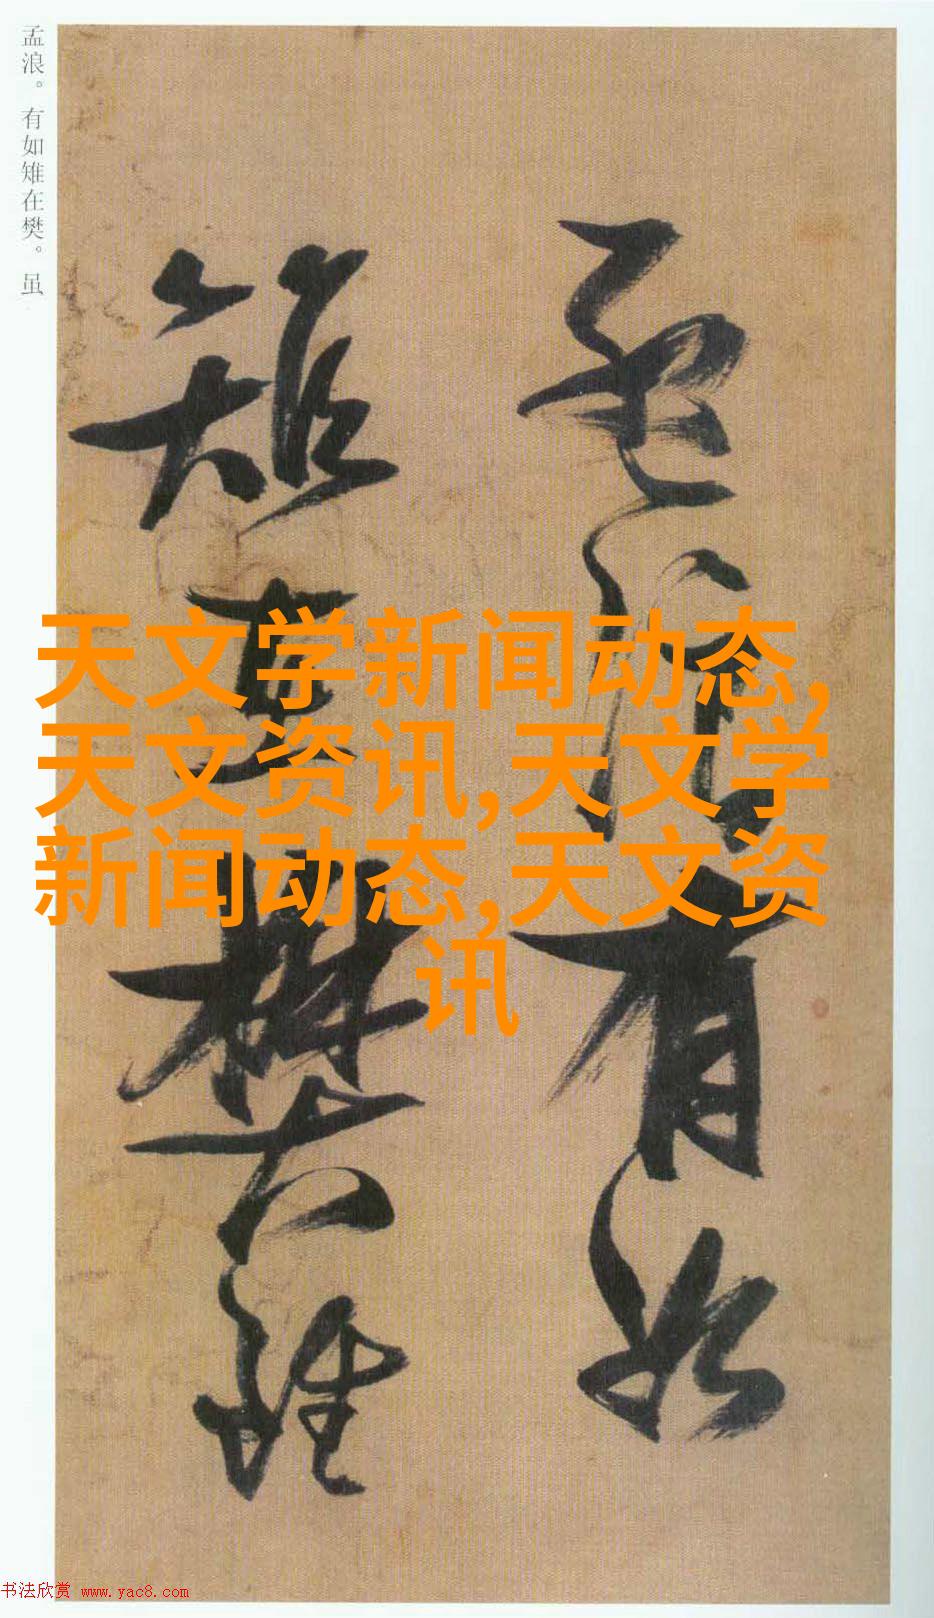 孟浪。有如雉在樊。虽
孟浪有如
雉在樊虽
天文学新闻动态,
天文资讯,天文学
新闻动态,天文资
讯
书法欣赏 www.yac8.com